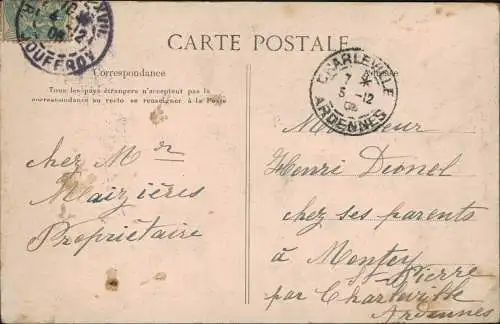 CARTE POSTALE
Correspondance
Tous les pays étrangers n'acceptent pas la
correspondance au recto se renseigner à la Poste
JOUFFROY
CHARLEVILLE
7 *
5 -12
ARDENNES
chez Mr
Maizières
Propriétaire
Monsieur
Henri Dionel
chez ses parents
à Montcy
St Pierre
par Charleville
Ardennes